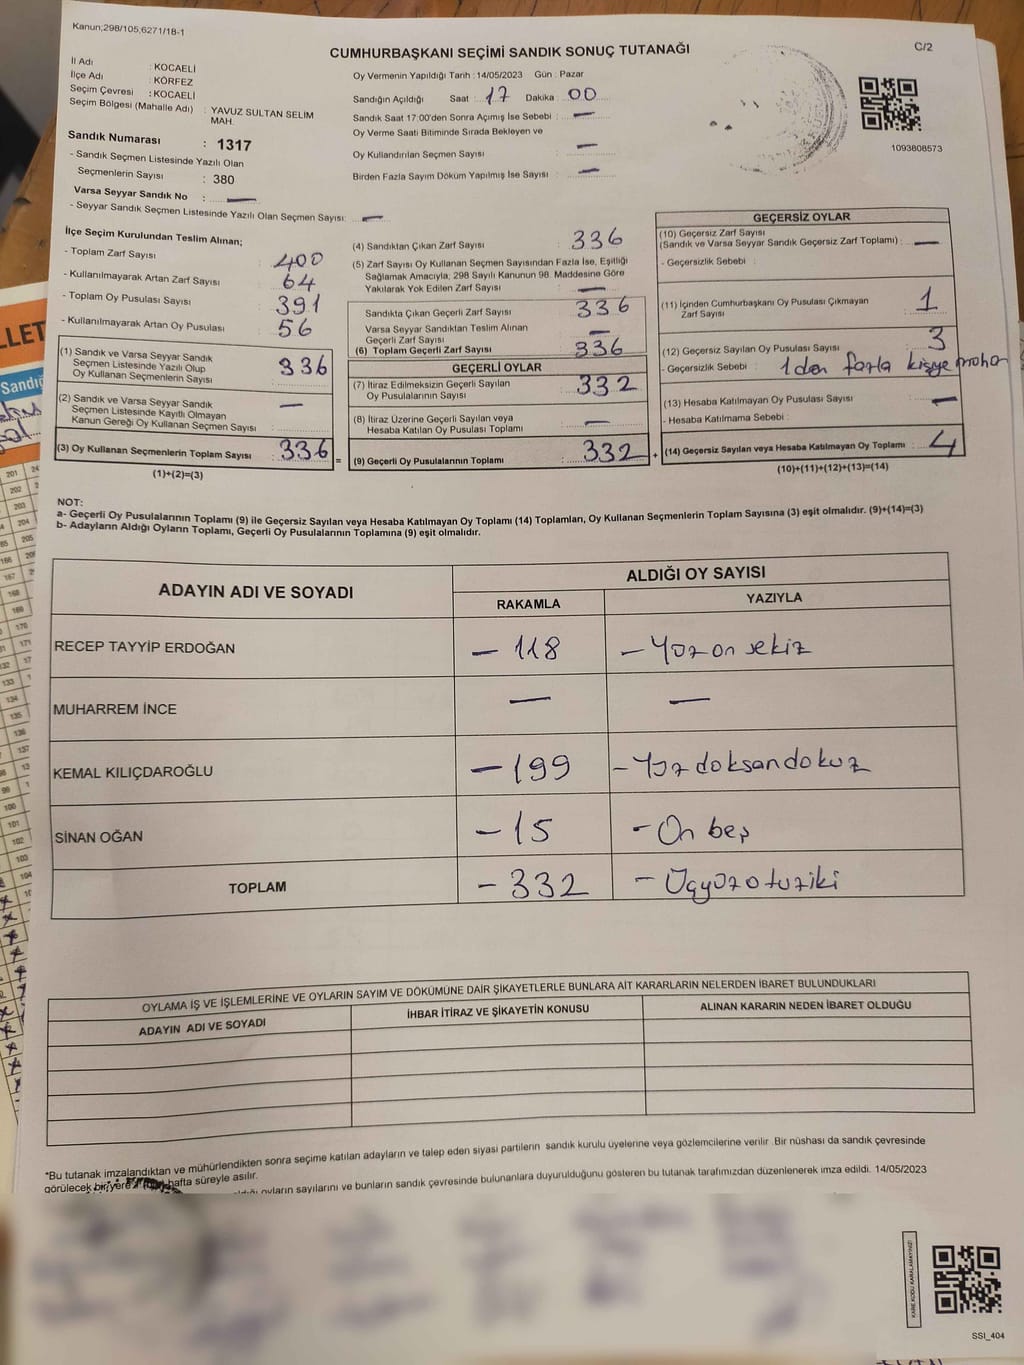 Kanun;298/105,6271/18-1
C/2
CUMHURBAŞKANI SEÇİMİ SANDIK SONUÇ TUTANAĞI
İl Adı : KOCAELİ
İlçe Adı : KÖRFEZ
Seçim Çevresi : KOCAELİ
Seçim Bölgesi (Mahalle Adı) : YAVUZ SULTAN SELİM
MAH.
Sandık Numarası : 1317
- Sandık Seçmen Listesinde Yazılı Olan
Seçmenlerin Sayısı : 380
Varsa Seyyar Sandık No : —
- Seyyar Sandık Seçmen Listesinde Yazılı Olan Seçmen Sayısı: —
Oy Vermenin Yapıldığı Tarih : 14/05/2023 Gün : Pazar
Sandığın Açıldığı Saat : 17 Dakika : 00
Sandık Saat 17:00'den Sonra Açımış İse Sebebi : —
Oy Verme Saati Bitiminde Sırada Bekleyen ve
Oy Kullandırılan Seçmen Sayısı : —
Birden Fazla Sayım Döküm Yapılmış İse Sayısı : —
1093808573
İlçe Seçim Kurulundan Teslim Alınan;
- Toplam Zarf Sayısı : 400
- Kullanılmayarak Artan Zarf Sayısı : 64
- Toplam Oy Pusulası Sayısı : 391
- Kullanılmayarak Artan Oy Pusulası : 56
(1) Sandık ve Varsa Seyyar Sandık
Seçmen Listesinde Yazılı Olup
Oy Kullanan Seçmenlerin Sayısı : 336
(2) Sandık ve Varsa Seyyar Sandık
Seçmen Listesinde Kayıtlı Olmayan
Kanun Gereği Oy Kullanan Seçmen Sayısı : —
(3) Oy Kullanan Seçmenlerin Toplam Sayısı : 336
(1)+(2)=(3)
=
(4) Sandıktan Çıkan Zarf Sayısı : 336
(5) Zarf Sayısı Oy Kullanan Seçmen Sayısından Fazla İse, Eşitliği
Sağlamak Amacıyla; 298 Sayılı Kanunun 98. Maddesine Göre
Yakılarak Yok Edilen Zarf Sayısı : —
Sandıkta Çıkan Geçerli Zarf Sayısı : 336
Varsa Seyyar Sandıktan Teslim Alınan
Geçerli Zarf Sayısı : —
(6) Toplam Geçerli Zarf Sayısı : 336
GEÇERLİ OYLAR
(7) İtiraz Edilmeksizin Geçerli Sayılan
Oy Pusulalarının Sayısı : 332
(8) İtiraz Üzerine Geçerli Sayılan veya
Hesaba Katılan Oy Pusulası Toplamı : —
(9) Geçerli Oy Pusulalarının Toplamı : 332
+
GEÇERSİZ OYLAR
(10) Geçersiz Zarf Sayısı
(Sandık ve Varsa Seyyar Sandık Geçersiz Zarf Toplamı) : —
- Geçersizlik Sebebi :
(11) İçinden Cumhurbaşkanı Oy Pusulası Çıkmayan
Zarf Sayısı : 1
(12) Geçersiz Sayılan Oy Pusulası Sayısı : 3
- Geçersizlik Sebebi : 1 den fazla kişiye
(13) Hesaba Katılmayan Oy Pusulası Sayısı : —
- Hesaba Katılmama Sebebi :
(14) Geçersiz Sayılan veya Hesaba Katılmayan Oy Toplamı : 4
(10)+(11)+(12)+(13)=(14)
NOT:
a- Geçerli Oy Pusulalarının Toplamı (9) ile Geçersiz Sayılan veya Hesaba Katılmayan Oy Toplamı (14) Toplamları, Oy Kullanan Seçmenlerin Toplam Sayısına (3) eşit olmalıdır. (9)+(14)=(3)
b- Adayların Aldığı Oyların Toplamı, Geçerli Oy Pusulalarının Toplamına (9) eşit olmalıdır.
ADAYIN ADI VE SOYADI
ALDIĞI OY SAYISI
RAKAMLA YAZIYLA
RECEP TAYYİP ERDOĞAN – 118 – Yüz on sekiz
MUHARREM İNCE — —
KEMAL KILIÇDAROĞLU – 199 – Yüz doksan dokuz
SİNAN OĞAN – 15 – On beş
TOPLAM – 332 – Üçyüz otuz iki
OYLAMA İŞ VE İŞLEMLERİNE VE OYLARIN SAYIM VE DÖKÜMÜNE DAİR ŞİKAYETLERLE BUNLARA AİT KARARLARIN NELERDEN İBARET BULUNDUKLARI
ADAYIN ADI VE SOYADI İHBAR İTİRAZ VE ŞİKAYETİN KONUSU ALINAN KARARIN NEDEN İBARET OLDUĞU
*Bu tutanak imzalandıktan ve mühürlendikten sonra seçime katılan adayların ve talep eden siyasi partilerin sandık kurulu üyelerine veya gözlemcilerine verilir .Bir nüshası da sandık çevresinde
görülecek bir yere hafta süreyle asılır.
oyların sayılarını ve bunların sandık çevresinde bulunanlara duyurulduğunu gösteren bu tutanak tarafımızdan düzenlenerek imza edildi. 14/05/2023
KARE KODU KARALAMAYINIZ!
SSI_404